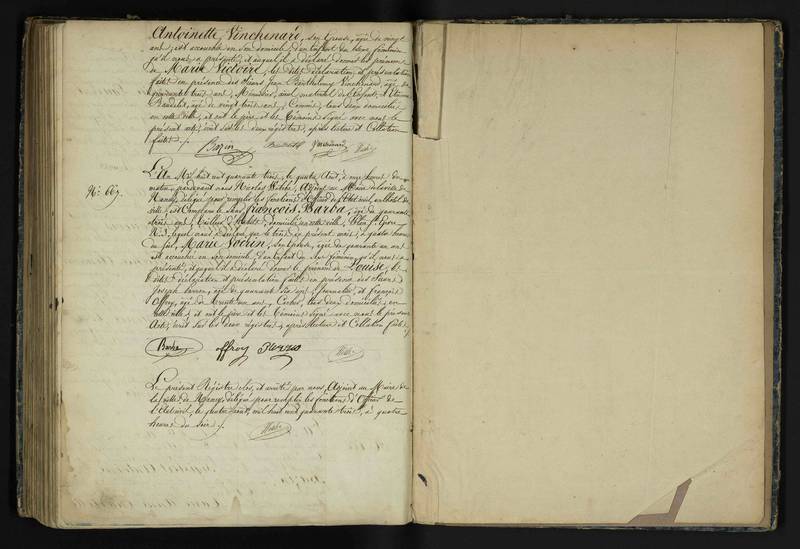 Antoinette Vinchenard, son épouse, agée de vingt
ans, est accouchée en son domicile, d'un Enfant du sexe féminin
qu'il nous a présenté, et auquel il a déclaré donner les prénoms
de Marie Victoire, les dites déclaration et présentation
faites en présence des Sieurs Jean Barthélemy Vinchenard, agé de
ans, Menuisier, aïeul maternel de l'Enfant, et Etienne
agé de vingt trois ans, Commis, tous deux domiciliés
en cette ville, et ont le père et les témoins signé avec nous le
présent acte, écrit sur les deux registres, après lecture et Collation
faites.
Bazin Vinchenard
N.º 667.
L'An Mil huit cent quarante trois, le quatre Août, à onze heures du
matin, pardevant nous Nicolas Adjoint au Maire de la ville de
Nancy, délégué pour remplir les fonctions d'Officier de l'Etat civil, en l'hôtel de
ville, est Comparu le Sieur François Barba, agé de quarante
trois ans, Tailleur d'habits, domicilié en cette ville,
lequel nous a déclaré que le trois du présent mois, à quatre heures
du soir, Marie Voirin, son épouse, agée de quarante un ans
est accouchée en son domicile, d'un Enfant du sexe féminin, qu'il nous a
présenté, et auquel il a déclaré donner le prénom de Louise, les
dites déclaration et présentation faites en présence des Sieurs
Joseph agé de quarante six ans, Journalier, et François
Offroy, agé de trente un ans, tous deux domiciliés en
cette ville, et ont le père et les témoins signé avec nous le présent
Acte, écrit sur les deux registres, après lecture et Collation faites.
Barba offroy
Le présent Régistre clos, et arrêté par nous, Adjoint au Maire de
la ville de Nancy, délégué pour remplir les fonctions d'Officier de
l'Etat civil, le quatre Août, mil huit cent quarante trois, à quatre
heures du soir.